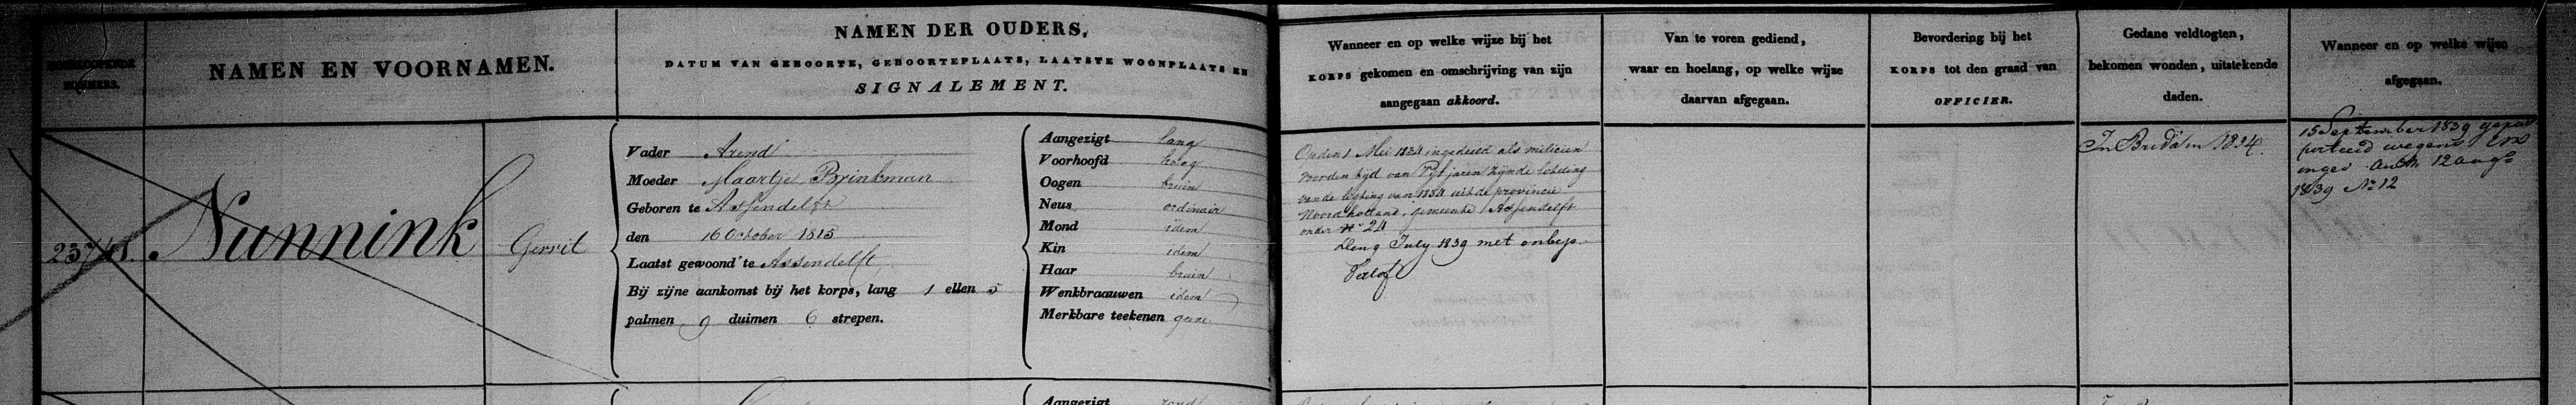 DOORLOOPENDE
NUMMERS.
NAMEN EN VOORNAMEN.
NAMEN DER OUDERS,
DATUM VAN GEBOORTE, GEBOORTEPLAATS, LAATSTE WOONPLAATS EN
SIGNALEMENT.
Wanneer en op welke wijze bij het
KORPS gekomen en omschrijving van zijn
aangegaan akkoord.
Van te voren gediend,
waar en hoelang, op welke wijze
daarvan afgegaan.
Bevordering bij het
KORPS tot den graad van
OFFICIER.
Gedane veldtogten,
bekomen wonden, uitstekende
daden.
Wanneer en op welke wijze
afgegaan.
Nunnink
Gerrit
Vader Arend
Moeder Maartje Brinkman
Geboren te Assendelft
den 16 October 1815
Laatst gewoond te Assendelft,
Bij zijne aankomst bij het korps, lang 1 ellen 5
palmen 9 duimen 6 strepen.
Aangezigt lang
Voorhoofd hoog
Oogen bruin
Neus ordinair
Mond idem
Kin idem
Haar bruin
Wenkbraauwen idem
Merkbare teekenen geene
Op den 1 Mei 1834 ingedeeld als milicien
voor den tijd van Vijf jaren zijnde loteling
van de ligting van 1834 uit de provincie
Noordholland, gemeente Assendelft
onder N° 24
Den 9 July 1839 met onbep.
Verlof
In Brida in 1834.
15 September 1839 gepas
porteerd wegens Exp
inged Auth 12 aug
1839 N° 12
Aangezigt rond